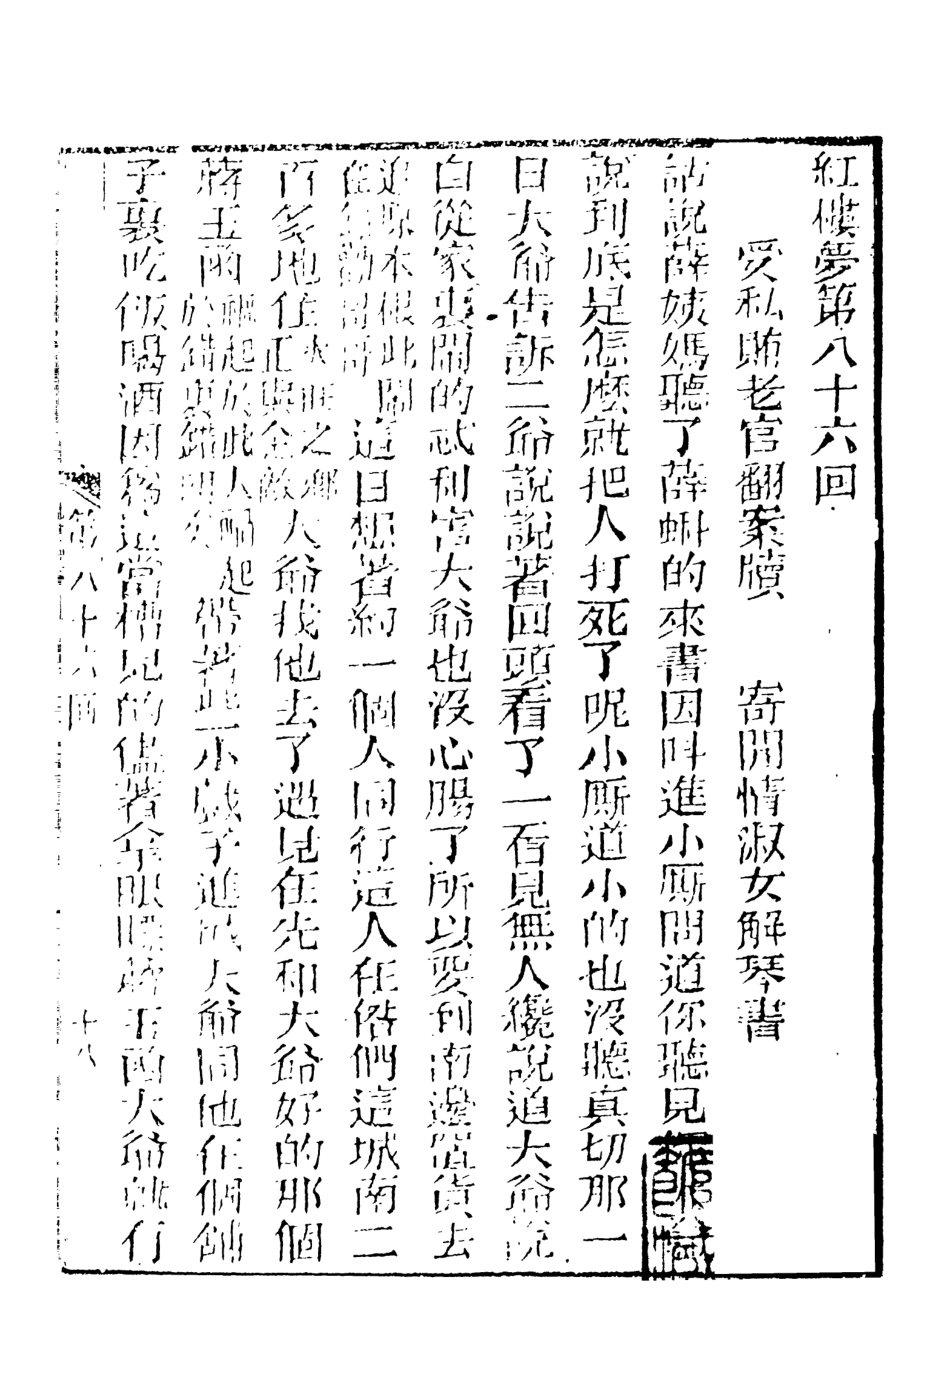 紅樓夢第八十六回
受私賄老官翻案牘　寄閒情淑女解琴書
話說薛姨媽聽了薛蝌的來書因呌進小厮問道你聽見
說到底是怎麼就把人打死了呢小厮道小的也沒聽真切那一
日大爺告訴二爺說說著回頭看了一看見無人纔說道大爺說
自從家裏鬧的忒利害大爺也沒心腸了所以要到南邊置貨去
追原本根此鬧
在無勸哥哥
這日想着約一個人同行這人在偺們這城南二
百多地住
大爺找他去了遇見在先和大爺好的那個
蔣玉菡
禍起於此人禍起
於錯裏錯
帶着些小戲子進城大爺同他在個舖
子裏吃飯喝酒因為這當槽兒的儘著拿眼瞟蔣玉菡大爺就有
第八十六回
十八